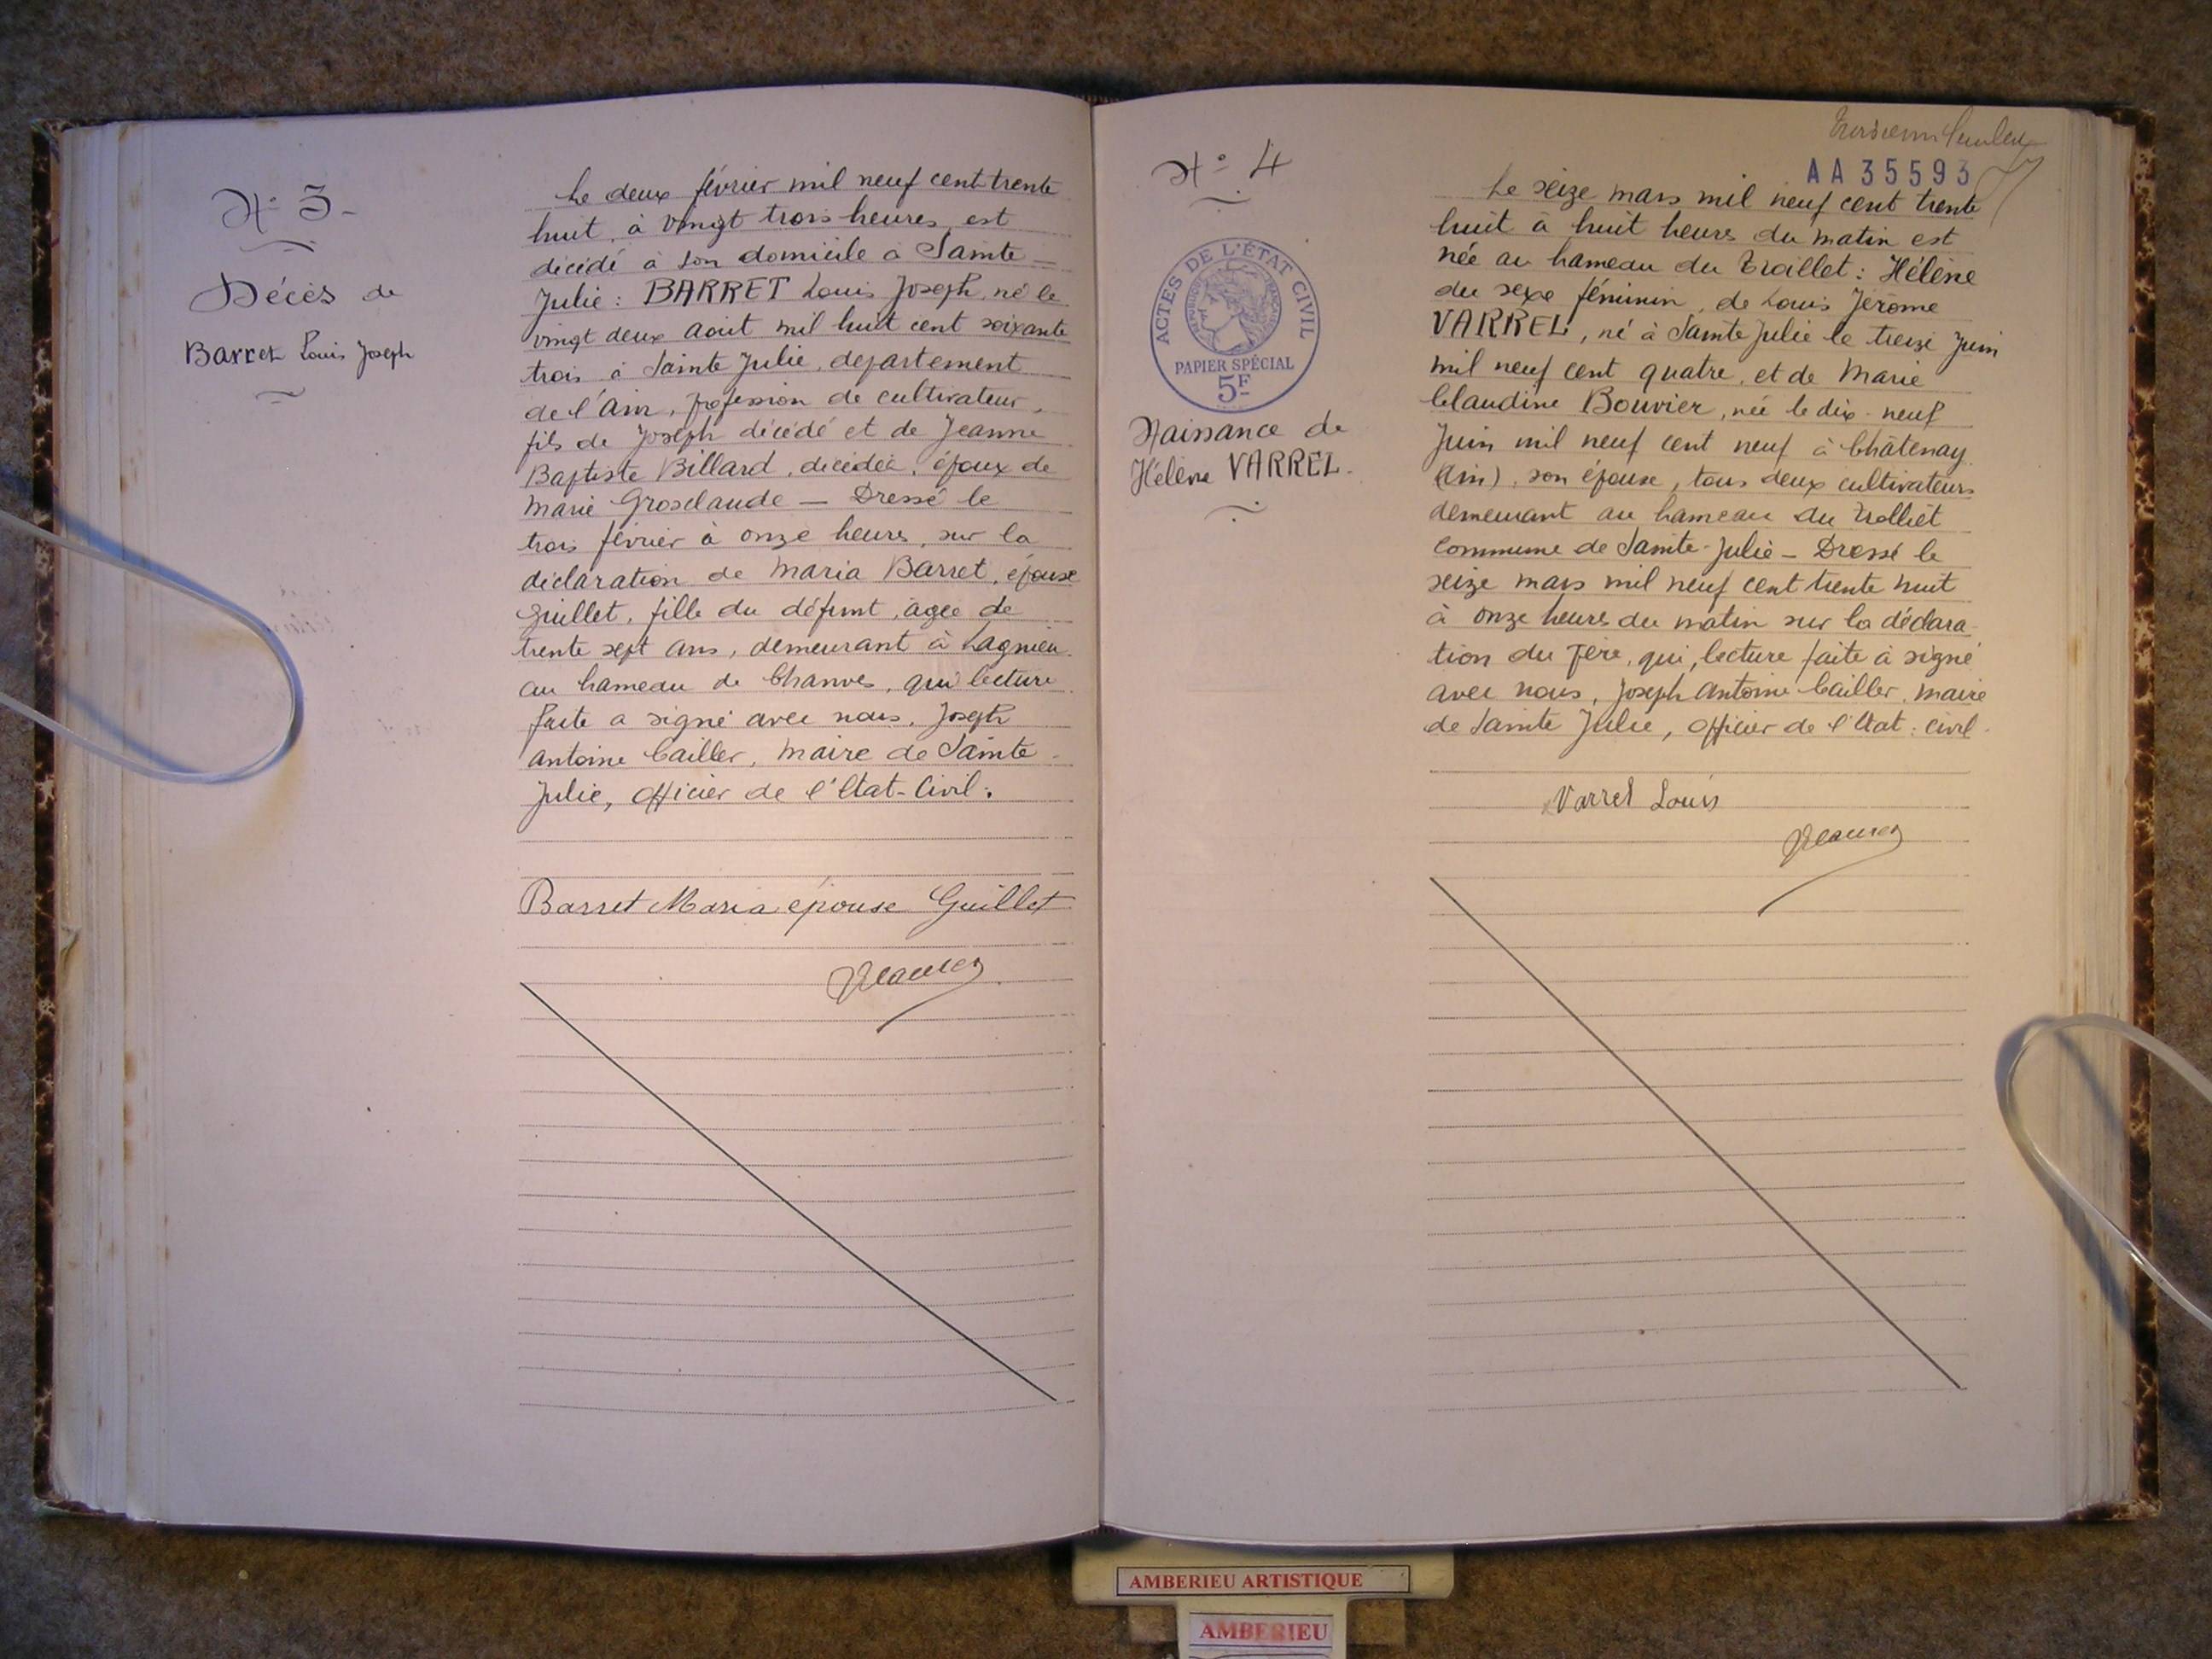 N° 3 -
Décès de
Barret Louis Joseph
Le deux février mil neuf cent trente
huit, à vingt trois heures, est
décédé à son domicile à Sainte
Julie : BARRET Louis Joseph, né le
vingt deux août mil huit cent soixante
trois à Sainte Julie, département
de l'Ain, profession de cultivateur,
fils de Joseph décédé et de Jeanne
Baptiste Billard, décédée, époux de
Marie Grosclaude — Dressé le
trois février à onze heures, sur la
déclaration de Maria Barret, épouse
Guillet, fille du défunt, âgée de
trente sept ans, demeurant à Lagnieu
au hameau de Chanves, qui lecture
faite a signé avec nous, Joseph
Antoine Cailler, Maire de Sainte
Julie, Officier de l'Etat-Civil.
Barret Maria épouse Guillet
N° 4
ACTES DE L'ÉTAT CIVIL
PAPIER SPÉCIAL
5F
Naissance de
Hélène VARREL.
AA 35593
Le seize mars mil neuf cent trente
huit à huit heures du matin est
née au hameau du Trolliet : Hélène
du sexe féminin, de Louis Jérôme
VARREL, né à Sainte Julie le treize Juin
mil neuf cent quatre, et de Marie
Claudine Bouvier, née le dix-neuf
Juin mil neuf cent neuf à Châtenay
(Ain), son épouse, tous deux cultivateurs
demeurant au hameau du Trolliet
Commune de Sainte-Julie — Dressé le
seize mars mil neuf cent trente huit
à onze heures du matin sur la déclara-
tion du père, qui, lecture faite à signé
avec nous, Joseph Antoine Cailler, maire
de Sainte Julie, Officier de l'Etat-Civil.
Varrel Louis
AMBERIEU ARTISTIQUE
AMBERIEU